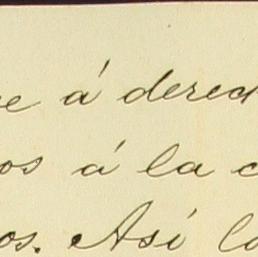 e á derec
os á la c
os. Así la